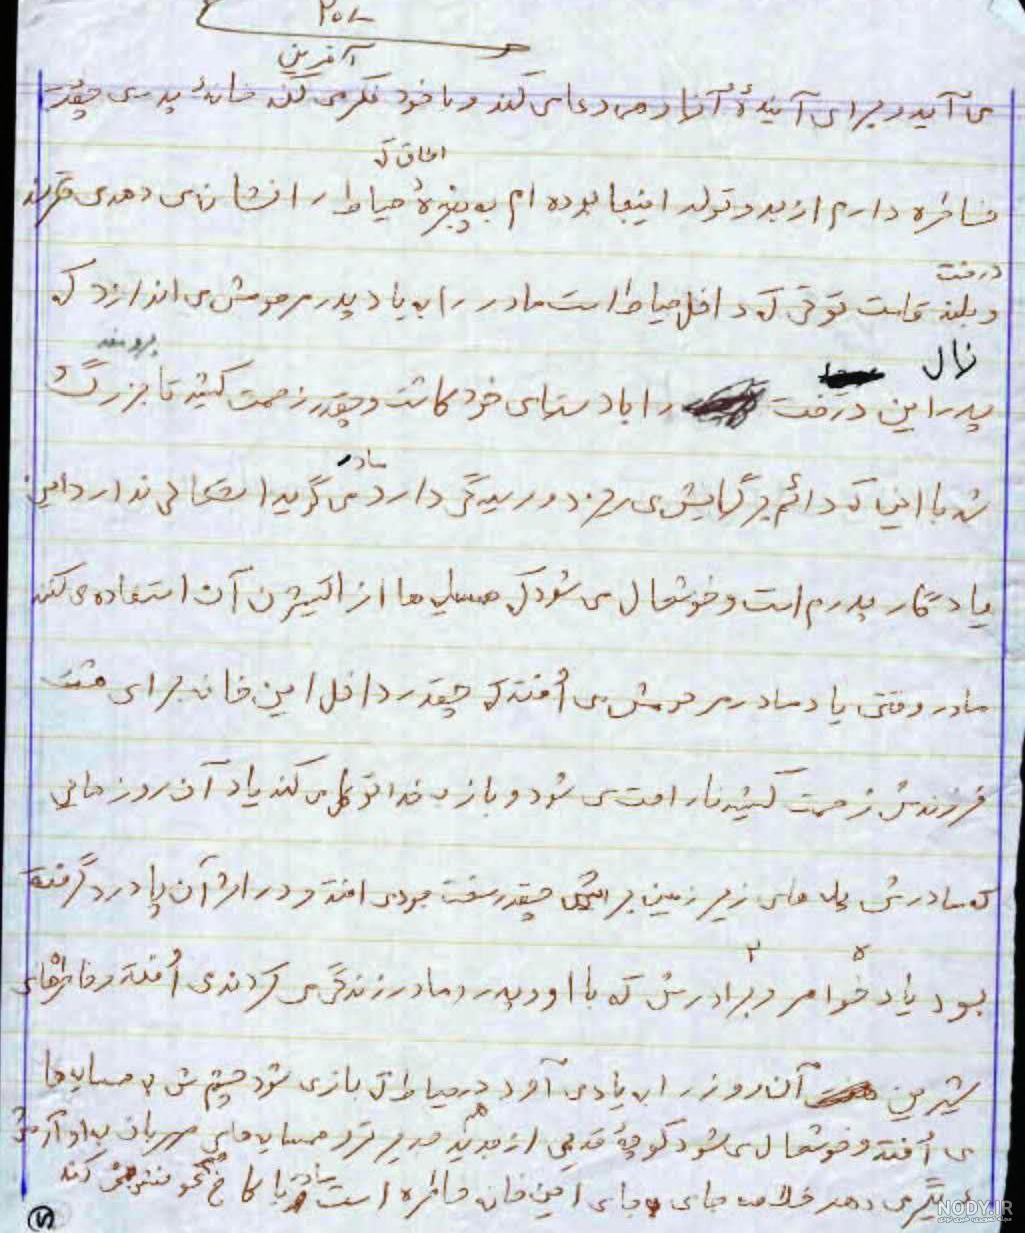 آفرین
می آید و برای آیندهٔ آنها دعا می کند و با خود فکر می کند خانهٔ پدری چقدر
اطاق که
خاطره دارم از بدو تولد اینجا بوده ام به پنجرهٔ حیاط را نشان می دهد
درخت
و بلند قامت توتی که داخل حیاط است مادر را به یاد پدر مرحومش می اندازد که
نهال برومند
پدر این درخت را با دستهای خود کاشت و چقدر زحمت کشید تا بزرگ
مادر
شد با این که دائم برگهایش می ریزد و رسیدگی دارد می گوید اشکالی ندارد این
یادگار پدرم است و خوشحال می شود که همسایه ها از اکسیژن آن استفاده می کنند
مادر وقتی یاد مادر مرحومش می اُفتد که چقدر داخل این خانه برای هشت
فرزندش زحمت کشید ناراحت می شود و باز به خدا توکل می کند یاد آن روزهایی
که مادرش پله های زیرزمین برایش چقدر سخت بود می افتد و در اثر آن پا درد گرفته
۵ ۲
بود یاد خواهر و برادرش که با او و پدر و مادر زندگی می کردند می اُفتد و خاطرهای
شیرین آن روز را به یاد می آورد در حیاط که بازی شود چشمش به همسایه ها
می اُفتد و خوشحال می شود کوچهٔ قدیمی از مدیر و همسایه های مهربان به او آرامش
می دهد خلاصه جای جای این خانه خاطره است مادر با کاخ کند
۷
NODY.IR